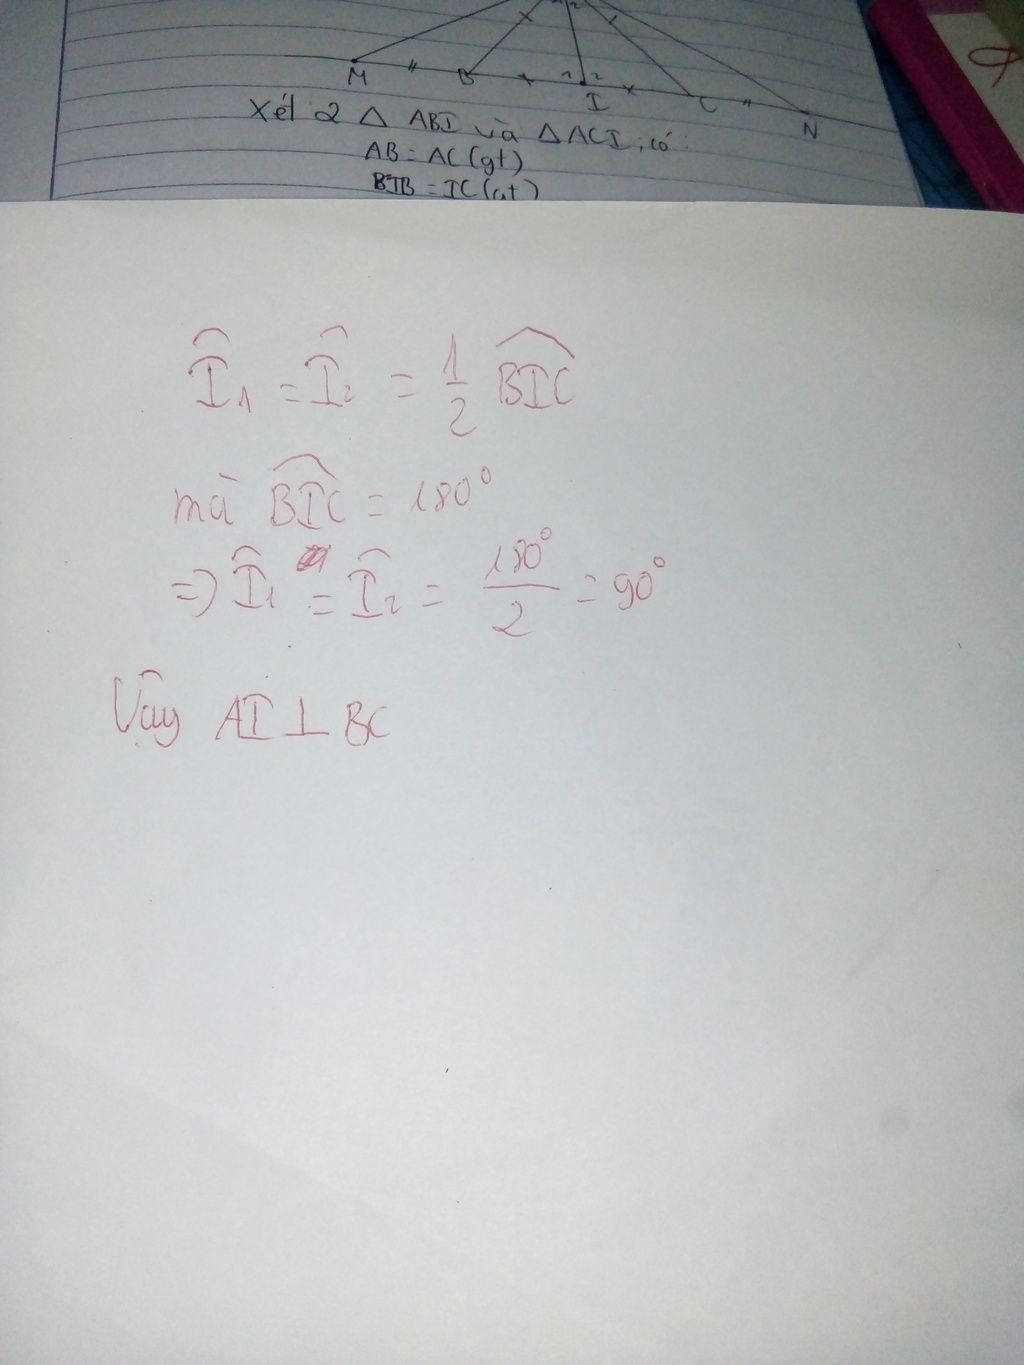 1 2
M B 1 2 I C N
Xét 2 △ ABI và △ ACI, có:
AB = AC (gt)
IB = IC (gt)
Î₁ = Î₂ = 1/2 BIC
mà BIC = 180°
=> Î₁ = Î₂ = 180°/2 = 90°
Vậy AI ⊥ BC